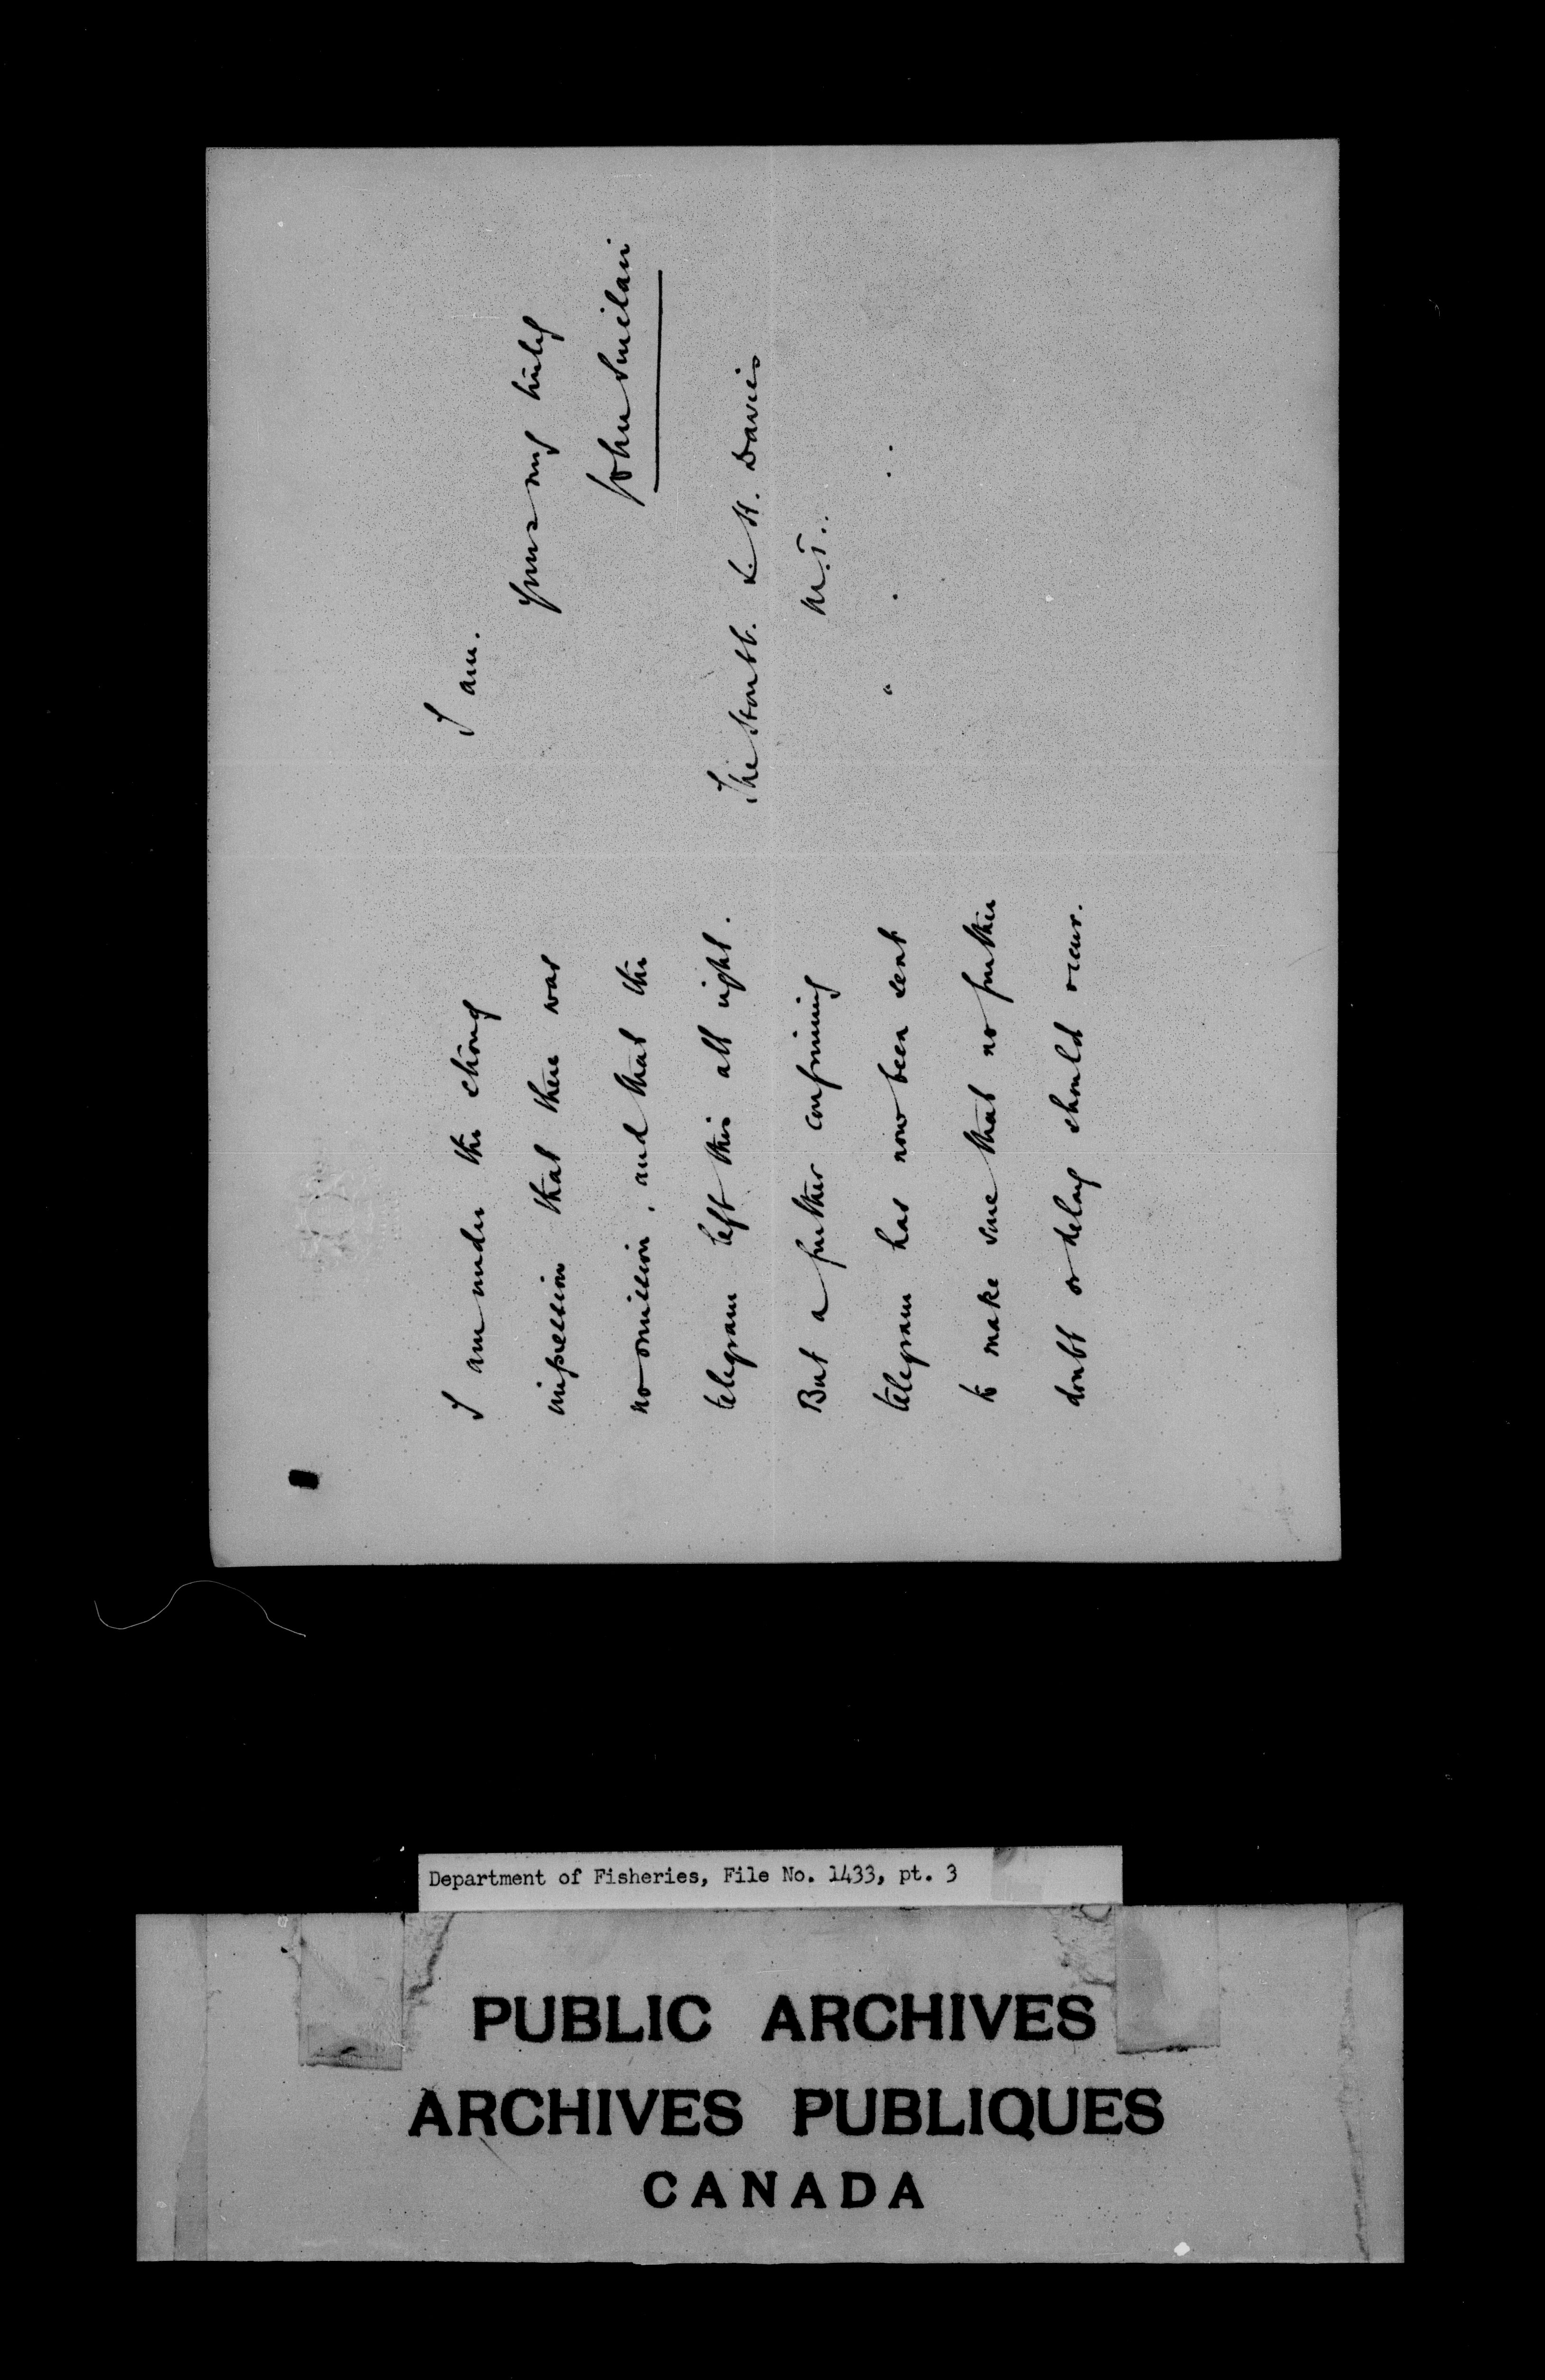 I am under the strong
impression that there was
no omission, and that the
telegram left this all right.
But a further confirming
telegram has now been sent
to make sure that no further
doubt or delay should occur.
I am.
Yours very truly
John Sinclair
The Honbl. L. H. Davies
Department of Fisheries, File No. 1433, pt. 3
PUBLIC ARCHIVES
ARCHIVES PUBLIQUES
CANADA